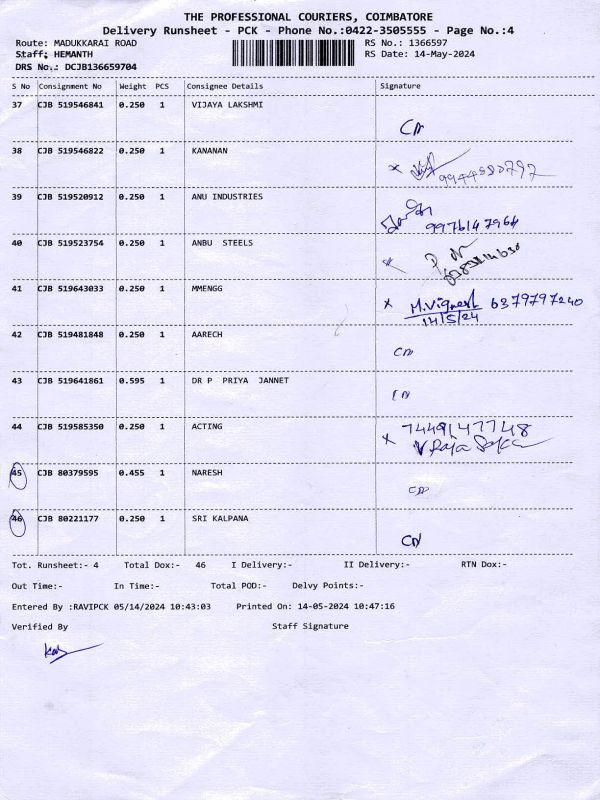 THE PROFESSIONAL COURIERS, COIMBATORE
Delivery Runsheet - PCK - Phone No.:0422-3505555 - Page No.:4
Route: MADUKKARAI ROAD RS No.: 1366597
Staff: HEMANTH RS Date: 14-May-2024
DRS No.: DCJB136659704
S No Consignment No Weight PCS Consignee Details Signature
37 CJB 519546841 0.250 1 VIJAYA LAKSHMI
CN
38 CJB 519546822 0.250 1 KANANAN
x
39 CJB 519520912 0.250 1 ANU INDUSTRIES
9976147964
40 CJB 519523754 0.250 1 ANBU STEELS
41 CJB 519643033 0.250 1 MMENGG
x M.Vignesh 6379797240
14/5/24
42 CJB 519481848 0.250 1 AARECH
CN
43 CJB 519641861 0.595 1 DR P PRIYA JANNET
CN
44 CJB 519585350 0.250 1 ACTING
7449147748
x
45 CJB 80379595 0.455 1 NARESH
CN
46 CJB 80221177 0.250 1 SRI KALPANA
CN
Tot. Runsheet:- 4 Total Dox:- 46 I Delivery:- II Delivery:- RTN Dox:-
Out Time:- In Time:- Total POD:- Delvy Points:-
Entered By :RAVIPCK 05/14/2024 10:43:03 Printed On: 14-05-2024 10:47:16
Verified By Staff Signature